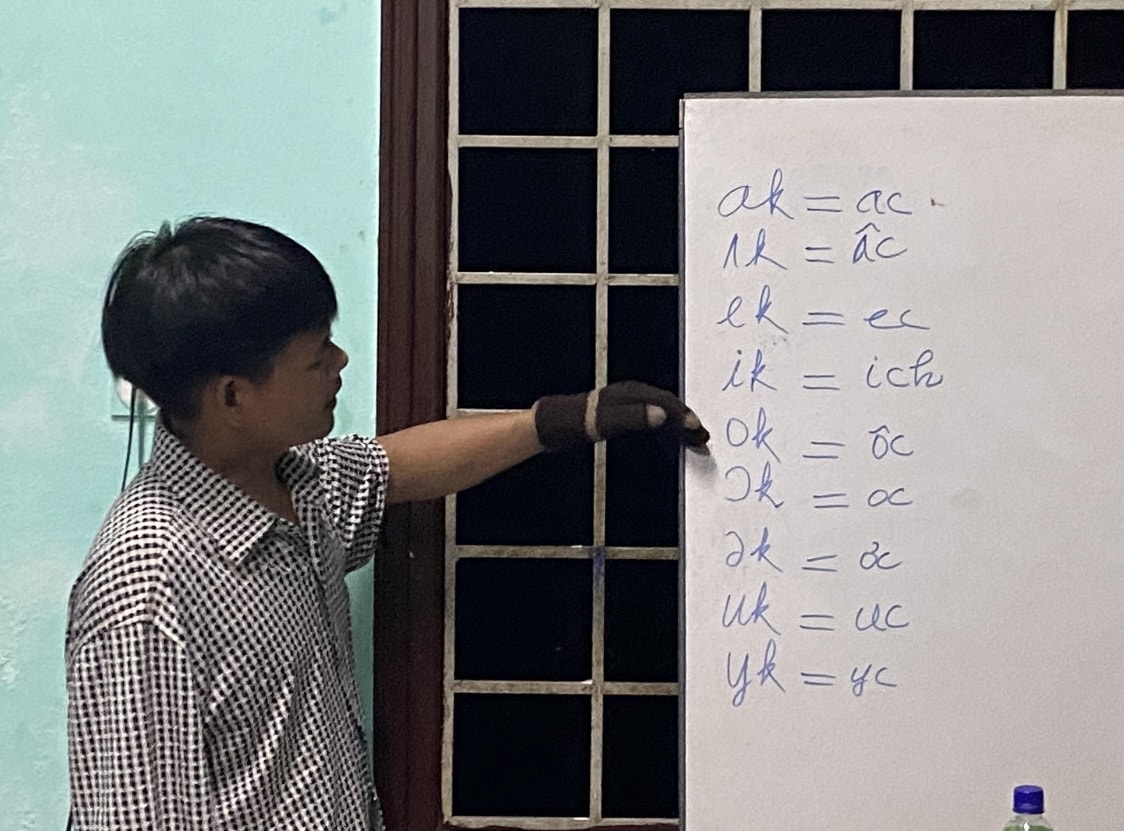 ak = ac
ʌk = âc
ek = ec
ik = ich
ok = ôc
ɔk = oc
ək = ơc
uk = uc
yk = yc